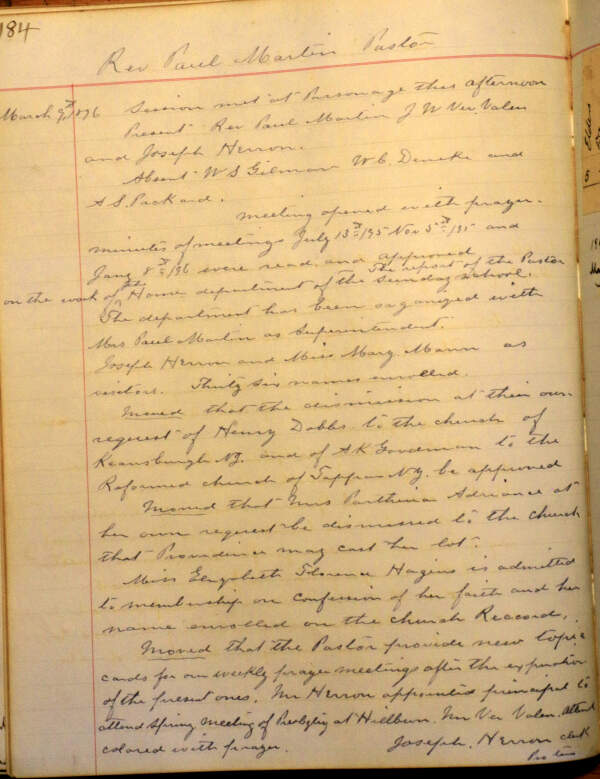 184
Rev Paul Martin Pastor
March 9th 1896 Session met at Parsonage this afternoon
Present Rev Paul Martin J W Ver Valen
and Joseph Herron.
Absent W S Gilman W. C. Deneke and
A S. Packard.
meeting opened with prayer.
minutes of meetings July 13th /95 Nov 5th /95 and
Jany 8th /96 were read and approved
The report of the Pastor
on the work of the Home department of the Sunday school.
The department has been organized with
Mrs Paul Martin as Superintendent.
Joseph Herron and Miss Mary Mann as
visitors. Thirty six names enrolled.
Moved that the dismission at their own
request of Henry Dobbs to the church of
Keansburgh N.J. and of A K Goodman to the
Reformed church of Tappan N.Y. be approved
Moved that Mrs Parthenia Adriance at
her own request be dismissed to the church
that Providence may cast her lot.
Miss Elizabeth Florence Hagins is admitted
to membership on Confession of her faith and her
name enrolled on the church Reccord.
Moved that the Pastor provide new topic
cards for our weekly prayer meetings after the expiration
of the present ones. Mr Herron appointed principal to
attend spring meeting of Presbytery at Hillburn. Mr Ver Valen
colored with prayer. Joseph. Herron clerk
Pro tem
Elders
5